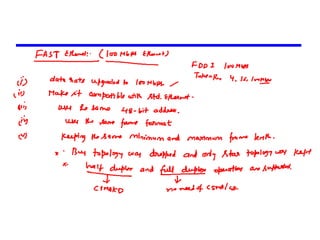 FAST Ethernet:- (100 Mbps Ethernet)
FDDI 100 Mbps
Token-Ro 4, 16, 100 Mbps
(i) data Rate upgraded to 100 Mbps
(ii) Make it compatible with std. Ethernet.
(iii) uses the same 48-bit address.
(iv) use the same frame format
(v) keeping the same minimum and maximum frame length.
x. Bus topology was dropped and only star topology was kept
x. half duplex and full duplex operation are supported.
CSMA/CD no need of CSMA/CD